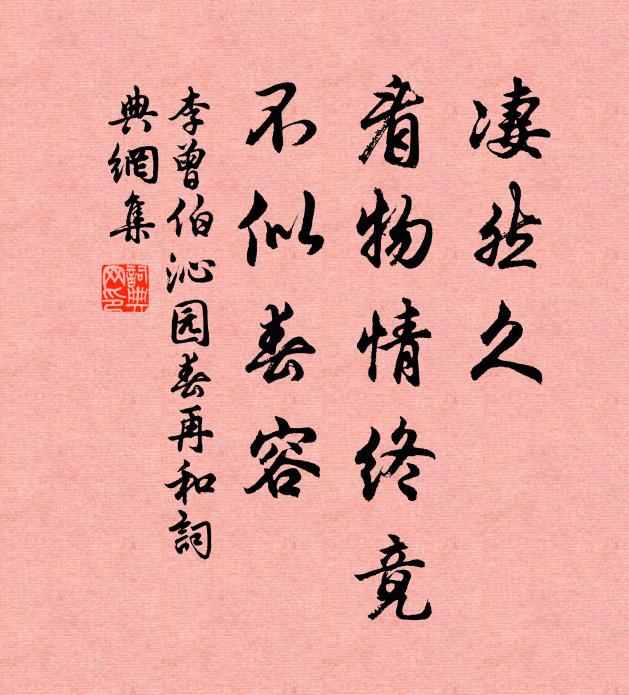 凄然久
看物情终竟
不似春容
李曾伯沁园春再和詞
典網集
詞典网印